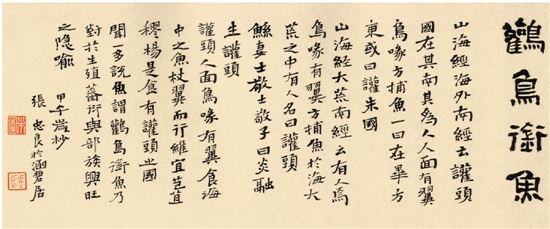 鸛鳥銜魚
山海經海外南經云讙頭
國在其南其為人人面有翼
鳥喙方捕魚一曰在畢方
東或曰讙朱國
山海經大荒南經云有人焉
鳥喙有翼方捕魚於海大
荒之中有人名曰讙頭
鯀妻士敬士敬子曰炎融
生讙頭
讙頭人面鳥喙有翼食海
中之魚杖翼而行維宜芑苣
穋楊是食有讙頭之國
聞一多說魚謂鸛鳥銜魚乃
對於生殖蕃衍與部族興旺
之隱喻
甲午歲杪
張忠良於涵碧居